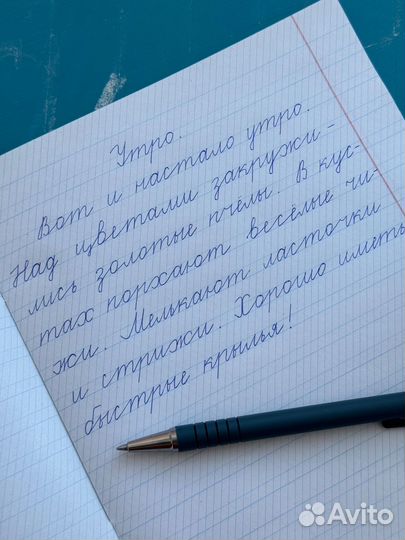 Утро.
Вот и настало утро.
Над цветами закружи-
лись золотые пчёлы. В кус-
тах порхают весёлые чи-
жи. Мелькают ласточки
и стрижи. Хорошо иметь
быстрые крылья!
Avito